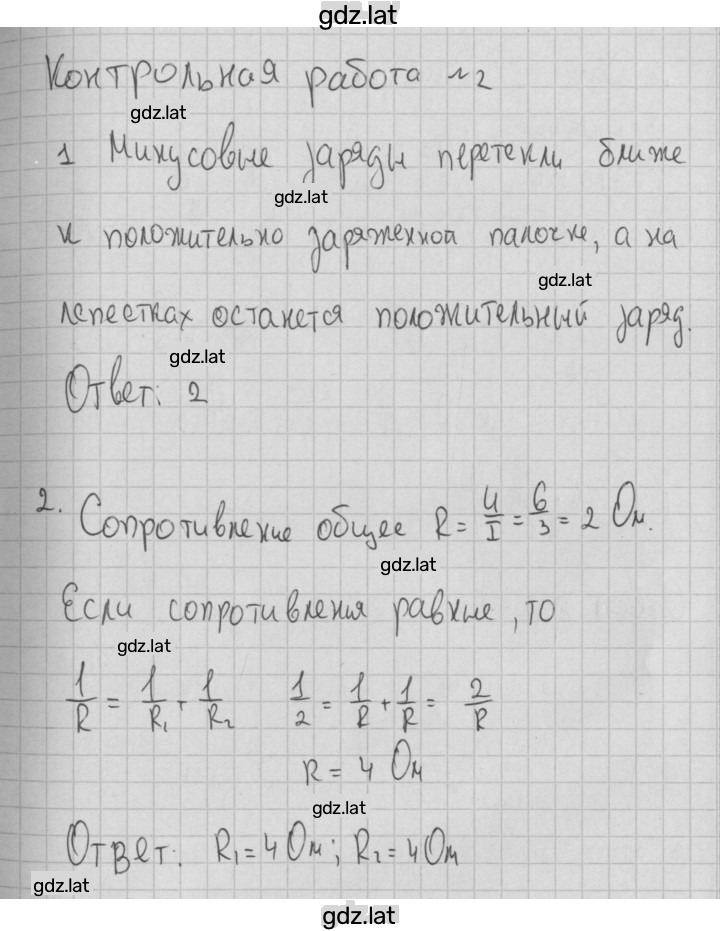 gdz.lat
Контрольная работа №2
gdz.lat
1 Минусовые заряды перетекли ближе
gdz.lat
к положительно заряженной палочке, а на
gdz.lat
лепестках останется положительный заряд.
gdz.lat
Ответ: 2
2. Сопротивление общее R = U/I = 6/3 = 2 Ом.
gdz.lat
Если сопротивления равные, то
gdz.lat
1/R = 1/R₁ + 1/R₂ 1/2 = 1/R + 1/R = 2/R
R = 4 Ом
gdz.lat
Ответ: R₁ = 4 Ом; R₂ = 4 Ом
gdz.lat
gdz.lat